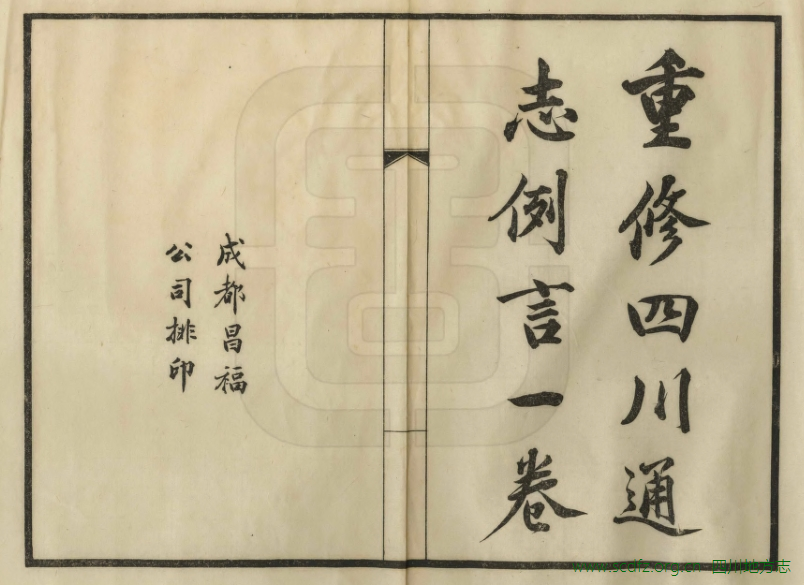 重修四川通
志例言一卷
成都昌福
公司排印
www.scdfz.org.cn 四川地方志